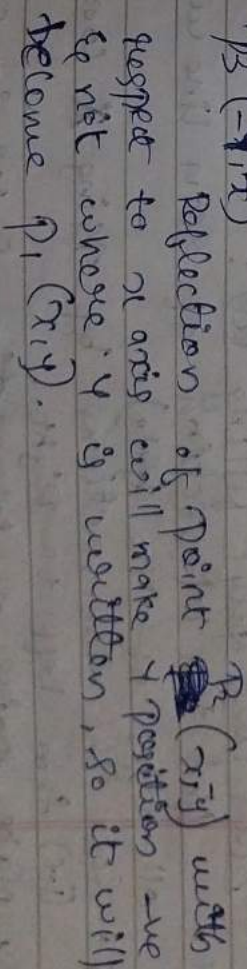 P3 (-x, -x)
Reflection of Point P2 (x,-y) with
respect to x axis will make y position -ve
& not where y is written, so it will
become P1 (x,y).